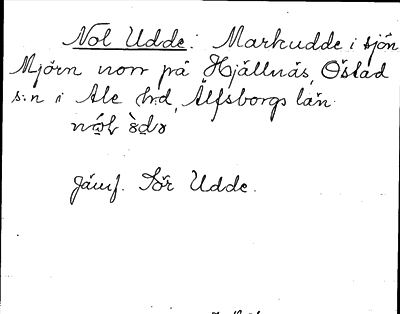 Nol Udde: Markudde i sjön
Mjörn norr på Hjällnäs, Östad
s:n i Ale h:d, Älfsborgs län.
Jämf. Sör Udde.